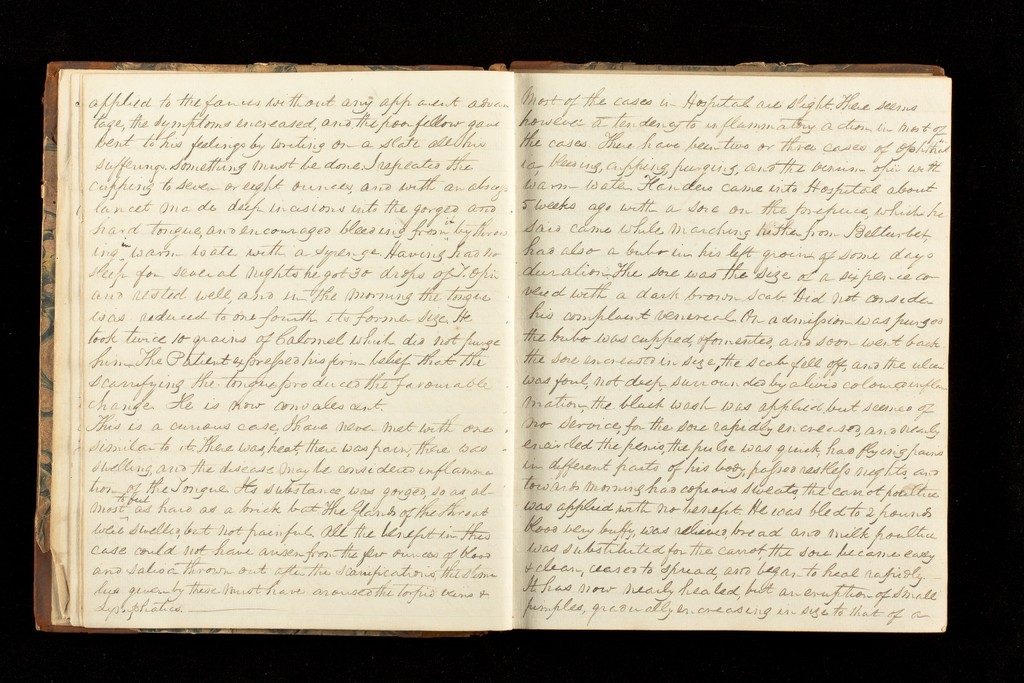 applied to the fauces without any apparent advan
tage, the symptoms encreased, and, the poor fellow gave
bent to his feelings by writing on a slate all his
sufferings. something must be done. I repeated the
cupping to seven or eight ounces, and with an absce
lancet made deep incisions into the gorged and
hard tongue, and encouraged bleeding from by throw
ing warm water with a syrenge. Having had no
sleep for several nights he got 30 drops of Tr. Opii
and rested well, and in the morning the tongue
was reduced to one fourth its former size. He
took twice 10 grains of Calomel which did not purge
him. The Patient expressed his firm belief that the
scarrifying the tongue produced the favourable
change He is now convalescent.
This is a curious case, I have never met with one
similar to it. There was heat, there was pain, there was
swelling, and the disease may be considered inflamma
tion of the Tongue. Its substance was gorged, so as al-
most to feel as hard as a brick but the glands of the throat
were swelled, but not painful. All the benefit in this
case could not have arisen from the few ounces of blood
and saliva thrown out after the scarifications, the stimu
lus given by these must have aroused the torpid veins &
Lymphatics.
Most of the cases in Hospital are slight. There seems
however a tendency to inflammatory action in most of
the cases. There have been two or three cases of Ophthal
ia, bleeding, cupping, purging, and the venum opii with
warm water. Flanders came into Hospital about
5 weeks ago with a sore on the prepuce, which he
said came while marching hither from Belturbet,
had also a bubo in his left groin of some days
duration. The sore was the size of a sixpence co
vered with a dark brown scab. I did not consider
his complaint venereal. On admission was purged
the bubo was cupped, & fomented, and soon went back
the sore encreased in size, the scab fell off, and the ulcer
was foul, not deep, surrounded by a livid coloured inflam
mation, the black wash was applied but seemed of
no service, for the sore rapidly encreased, and nearly
encircled the penis, the pulse was quick, had flying pains
in different parts of his body, passed restless nights, and
towards morning had copious sweats, the carrot poultice
was applied with no benefit. He was bled to 2 pounds
blood very buffy, was relieved, bread and milk poultice
was substituted for the carrot the sore became easy
& clean, ceased to spread, and began to heal rapidly
It has now nearly healed, but an eruption of small
pimples, gradually encreasing in size to that of a